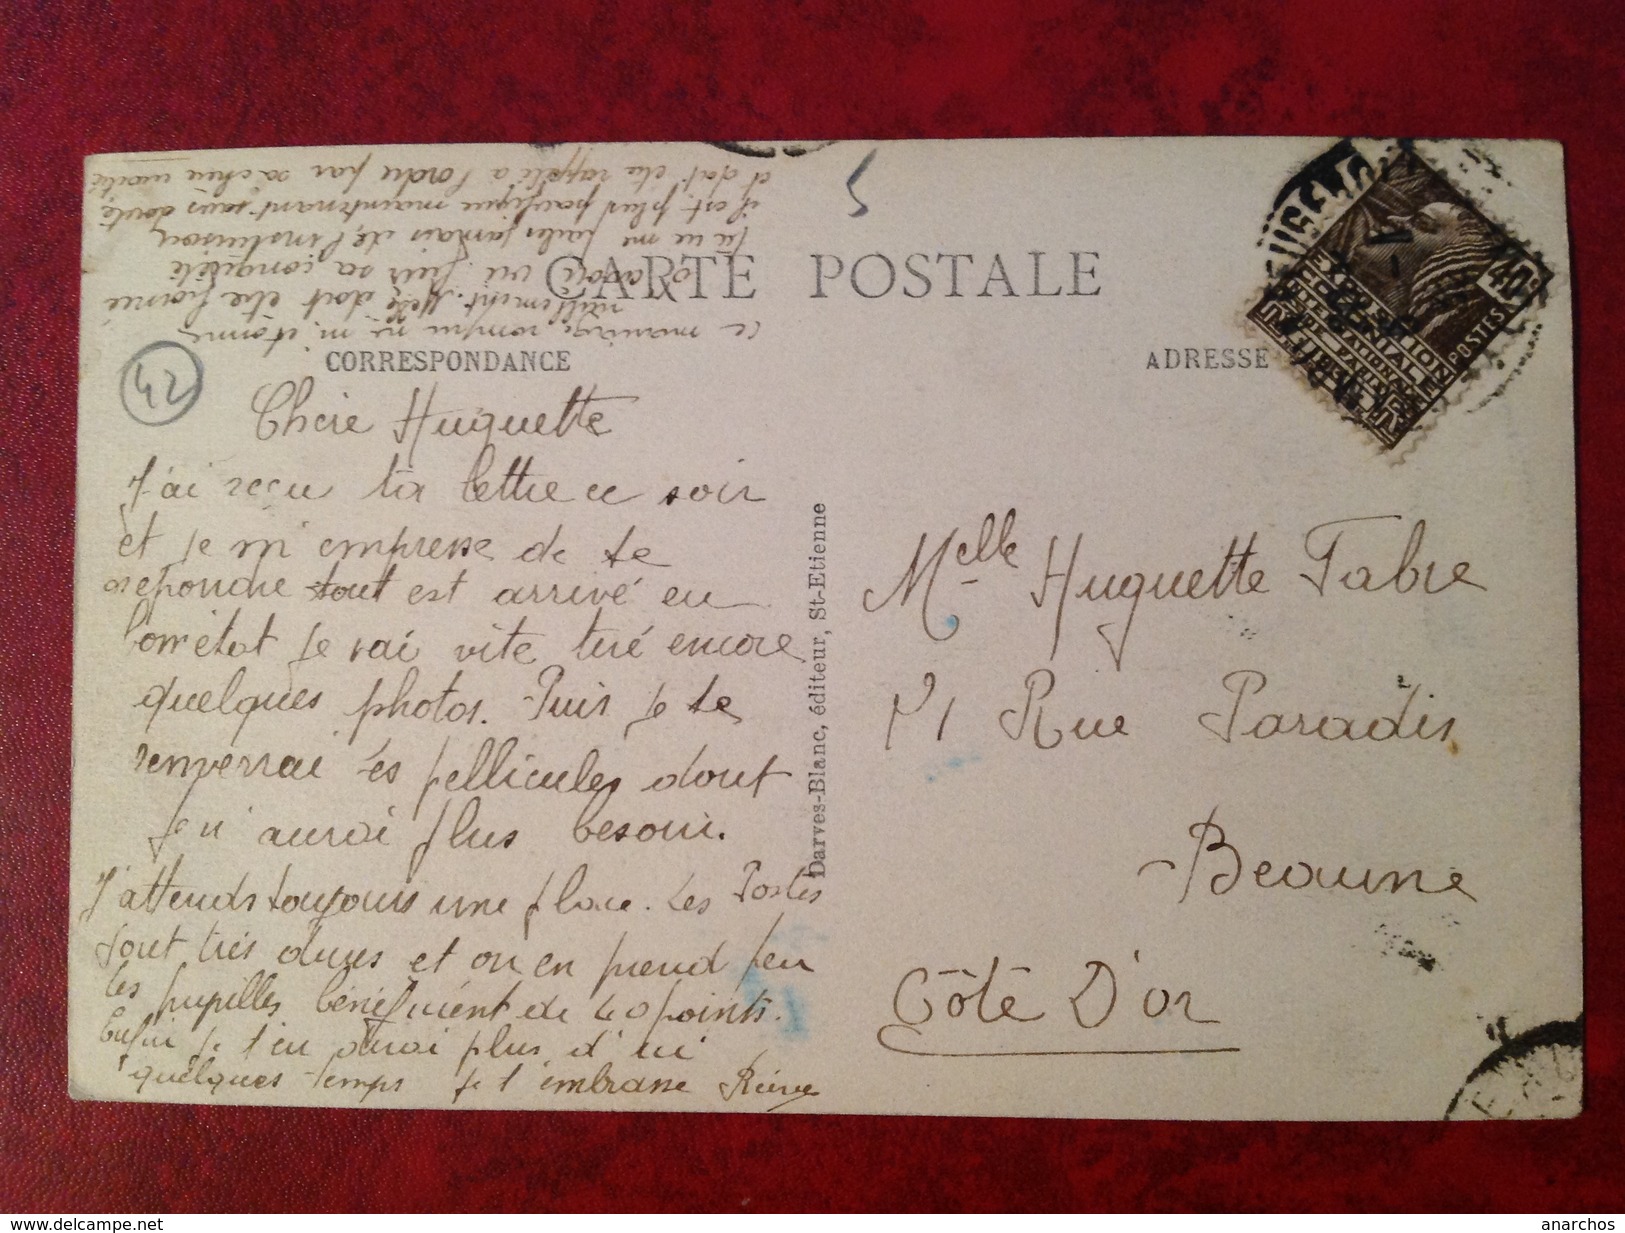 CARTE POSTALE
CORRESPONDANCE
ADRESSE
42
Chère Huguette
J'ai reçu ta lettre ce soir
et je m'empresse de te
repondre tout est arrivé en
bon état je vai vite tiré encore
quelques photos. Puis je te
renverrai les pellicules dont
je n'aurai plus besoin.
J'attends toujours une place. Les Postes
sont très dures et on en prend peu
les pupilles bénéficient de 40 points.
Enfin je t'en dirai plus d'ici
quelques temps je t'embrasse Reine
ce mariage rompu ne m'étonne
nullement. Melle doit être fiancé
as vu sa conquête
Tu ne me parles jamais de l'instituson
il est plus pacifique maintenant sans doute
et doit etre rappelé a l'ordre par sa chère moitié
Darves-Blanc, éditeur, St-Etienne
Melle Huguette Fabre
71 Rue Paradis
Beaune
Côte D'or
EXPOSITION
COLONIALE
INTERNATIONALE
PARIS 1931
POSTES
40c
RF
https://www.delcampe.net
anarchos